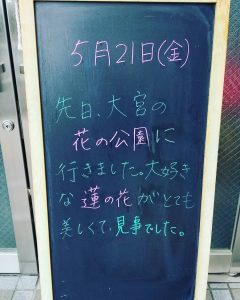 5月21日(金)
先日、大宮の
花の公園に
行きました。大好き
な蓮の花がとても
美しくて、見事でした。